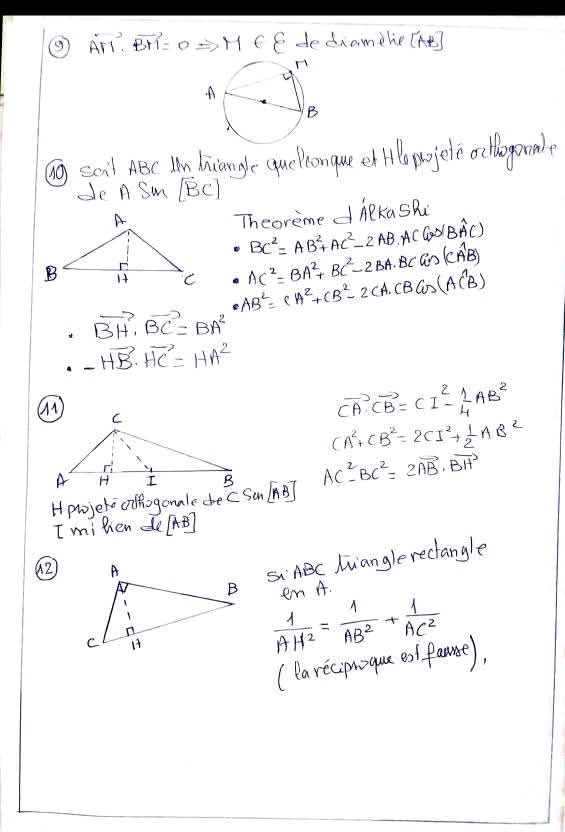 ⑨ $\overrightarrow{AM} \cdot \overrightarrow{BM} = 0 \Rightarrow M \in \mathcal{C}$ de diamètre [AB]
M
A
B
⑩ Soit ABC Un triangle quelconque et H le projeté orthogonale
de A Sur [BC]
Theorème d'AlKaShi
A
• $BC^2 = AB^2 + AC^2 - 2AB \cdot AC \cos(B\hat{A}C)$
B H C
• $AC^2 = BA^2 + BC^2 - 2BA \cdot BC \cos(C\hat{A}B)$
• $AB^2 = CA^2 + CB^2 - 2CA \cdot CB \cos(A\hat{C}B)$
• $\overrightarrow{BH} \cdot \overrightarrow{BC} = BA^2$
• $-\overrightarrow{HB} \cdot \overrightarrow{HC} = HA^2$
⑪
C
$\overrightarrow{CA} \cdot \overrightarrow{CB} = CI^2 - \frac{1}{4} AB^2$
$CA^2 + CB^2 = 2CI^2 + \frac{1}{2} AB^2$
A H I B
$AC^2 - BC^2 = 2\overrightarrow{AB} \cdot \overrightarrow{BH}$
H projeté orthogonale de C Sur [AB]
I milien de [AB]
⑫
A
B
C
H
Si ABC triangle rectangle
en A.
$\frac{1}{AH^2} = \frac{1}{AB^2} + \frac{1}{AC^2}$
(la réciproque est fausse),